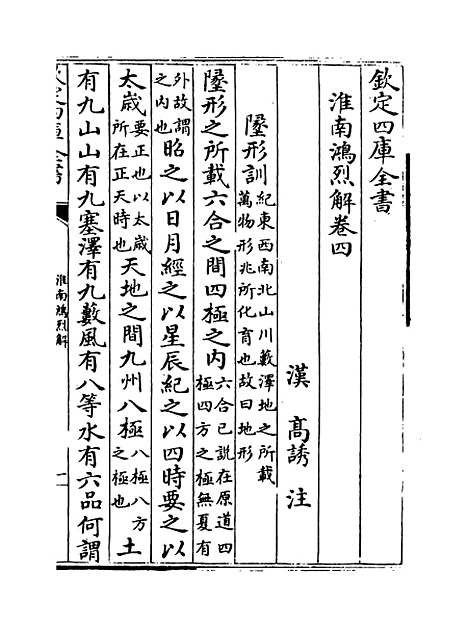 欽定四庫全書
淮南鴻烈解卷四
漢　髙誘　注
墬形訓紀東西南北山川藪澤地之所載
萬物形兆所化育也故曰地形
墬形之所載六合之間四極之内六合已説在原道四
極四方之極無夏有
外故謂
之内也昭之以日月經之以星辰紀之以四時要之以
太歳要正也以太歳
所在正天時也天地之間九州八極八極八方
之極也土
有九山山有九塞澤有九藪風有八等水有六品何謂
淮南鴻烈解
一